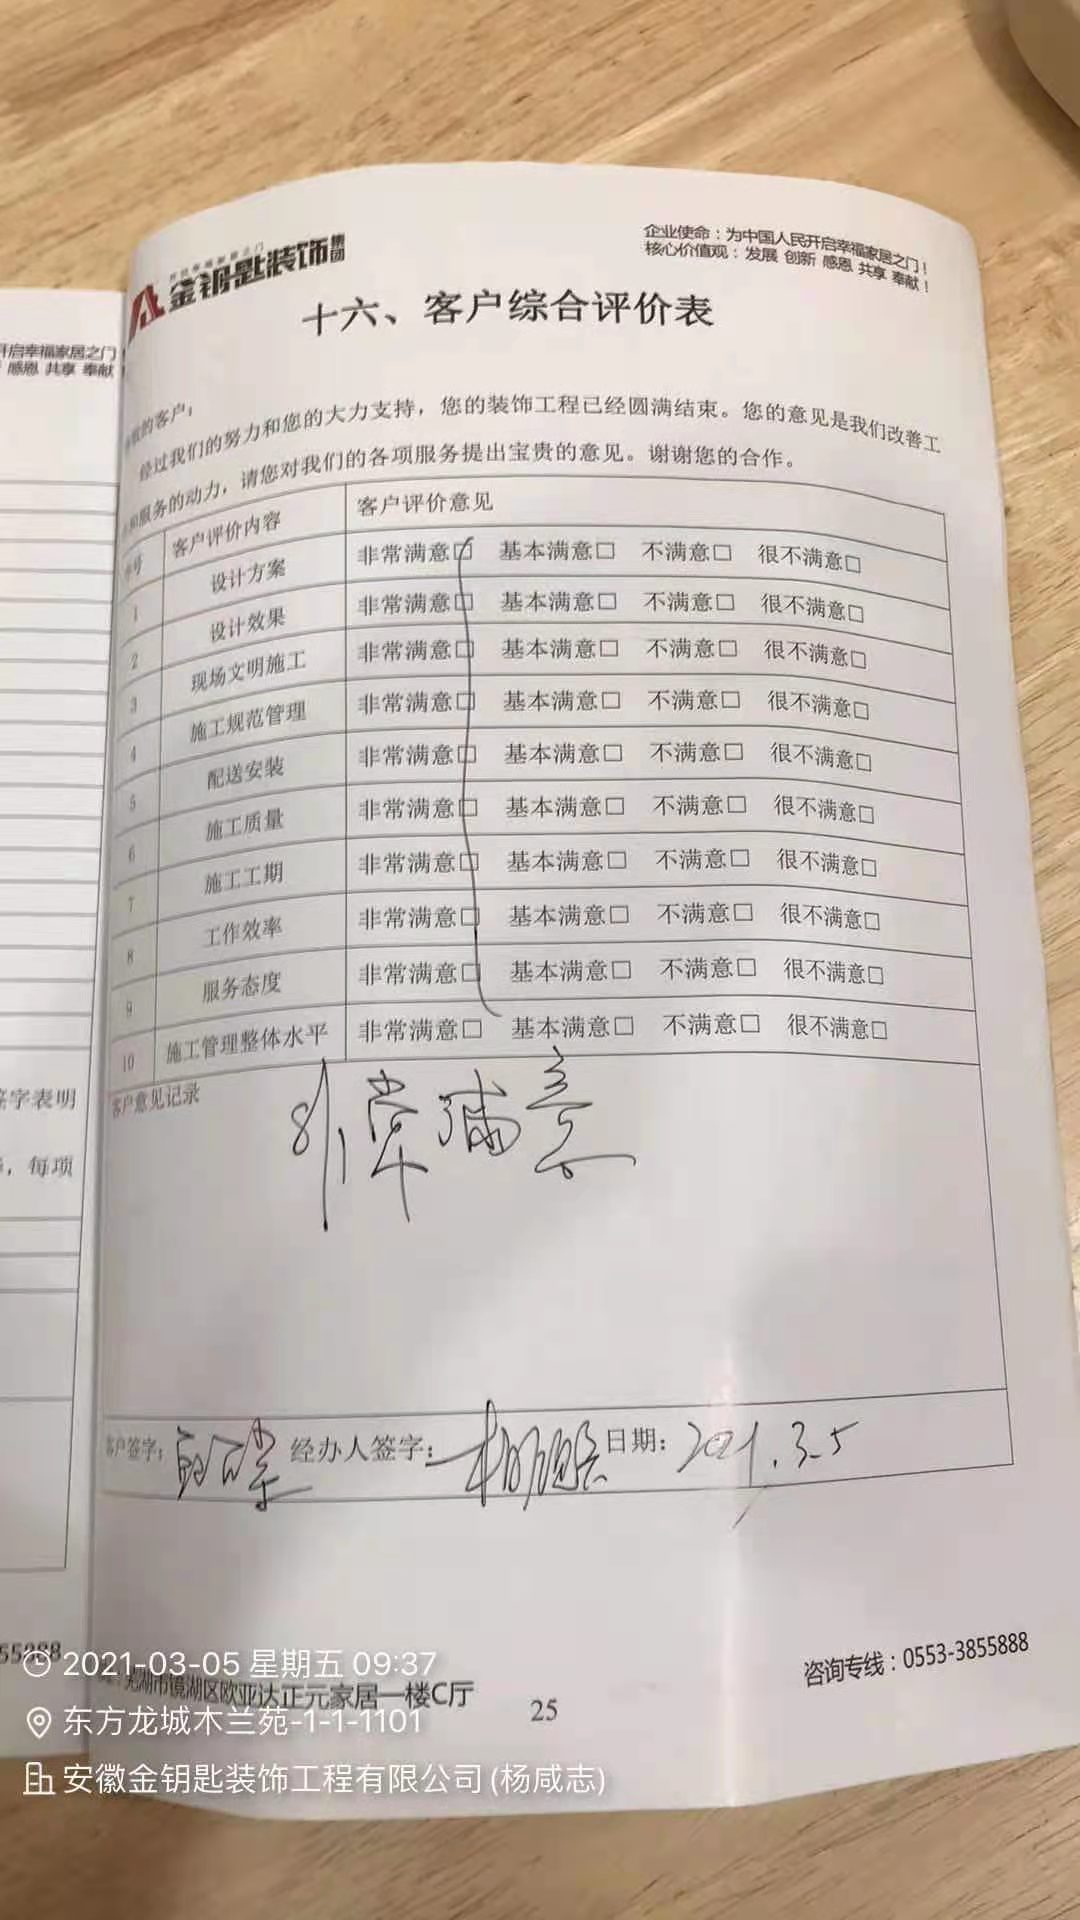 金钥匙装饰集团
企业使命：为中国人民开启幸福家居之门！
核心价值观：发展 创新 感恩 共享 奉献！
十六、客户综合评价表
的客户；
经过我们的努力和您的大力支持，您的装饰工程已经圆满结束。您的意见是我们改善工
和服务的动力，请您对我们的各项服务提出宝贵的意见。谢谢您的合作。
号 客户评价内容 客户评价意见
1 设计方案 非常满意□ 基本满意□ 不满意□ 很不满意□
2 设计效果 非常满意□ 基本满意□ 不满意□ 很不满意□
3 现场文明施工 非常满意□ 基本满意□ 不满意□ 很不满意□
4 施工规范管理 非常满意□ 基本满意□ 不满意□ 很不满意□
5 配送安装 非常满意□ 基本满意□ 不满意□ 很不满意□
6 施工质量 非常满意□ 基本满意□ 不满意□ 很不满意□
7 施工工期 非常满意□ 基本满意□ 不满意□ 很不满意□
8 工作效率 非常满意□ 基本满意□ 不满意□ 很不满意□
9 服务态度 非常满意□ 基本满意□ 不满意□ 很不满意□
10 施工管理整体水平 非常满意□ 基本满意□ 不满意□ 很不满意□
客户意见记录
非常满意
客户签字： 经办人签字： 日期：2021.3.5
芜湖市镜湖区欧亚达正元家居一楼C厅
25
咨询专线：0553-3855888
开启幸福家居之门
感恩 共享 奉献
签字表明
，每项
55888
2021-03-05 星期五 09:37
东方龙城木兰苑-1-1-1101
安徽金钥匙装饰工程有限公司(杨咸志)